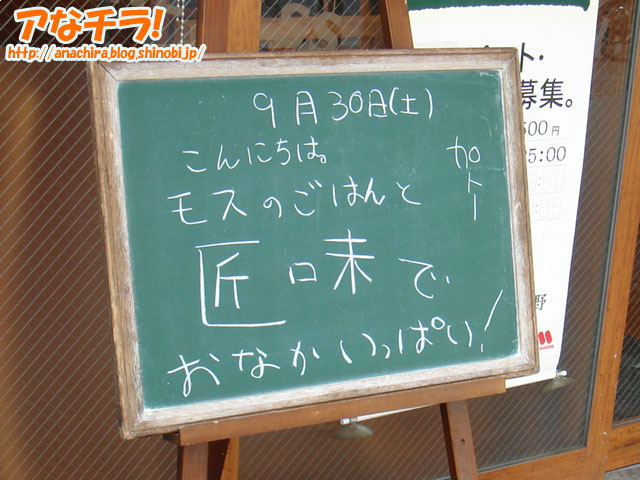 アなチラ!
http://anachira.blog.shinobi.jp/
9月30日(土)
こんにちは。
カトー
モスのごはんと
匠味で
おなかいっぱい!
ト・
募集。
500円
25:00
野